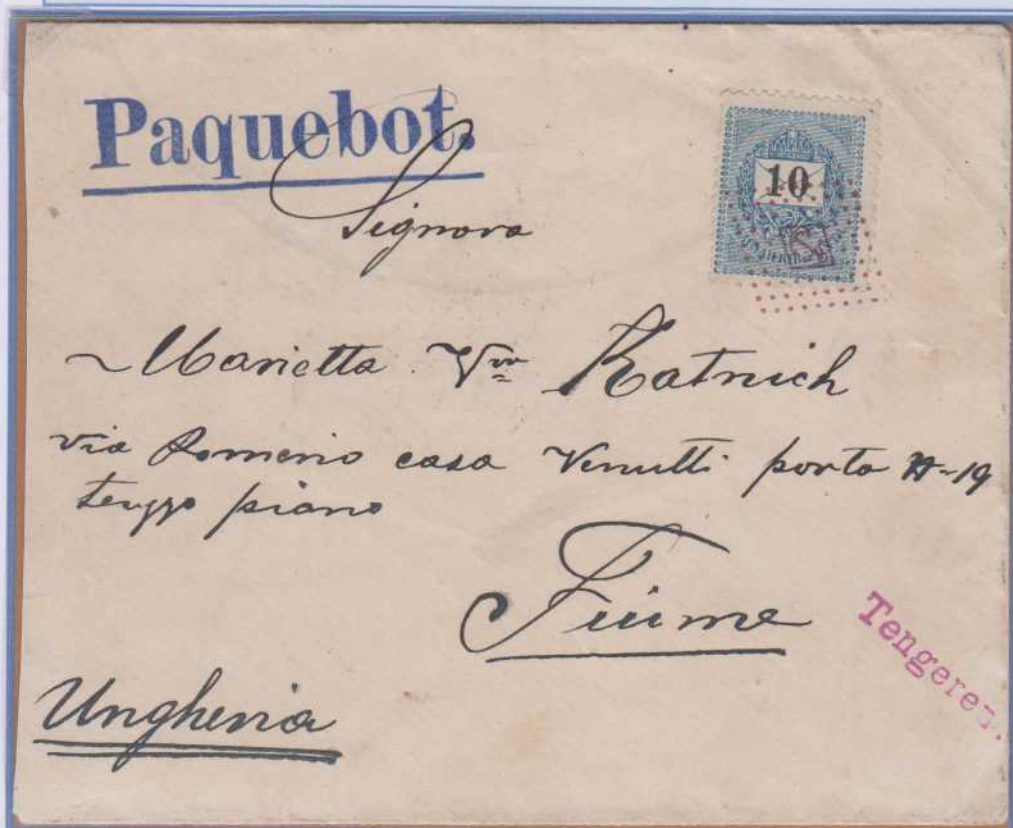 Paquebot.
10
Signora
Marietta Vva Katnich
via Pomerio casa Venutti porta N-19
terzzo piano
Fiume
Tengeren.
Ungheria